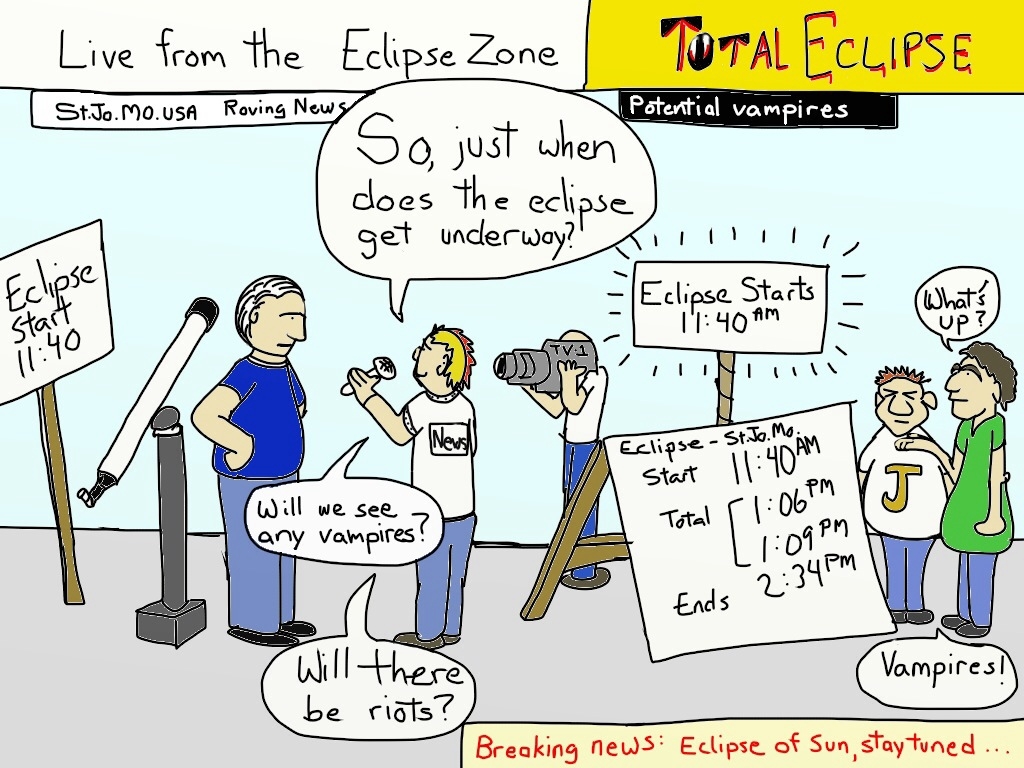 Live from the Eclipse Zone
TOTAL ECLIPSE
St.Jo.MO.USA Roving News
Potential vampires
So, just when
does the eclipse
get underway?
Eclipse
start
11:40
Eclipse Starts
11:40 AM
What's
up?
TV-1
News
Will we see
any vampires?
Eclipse - St.Jo.Mo.
Start 11:40 AM
Total 1:06 PM
1:09 PM
Ends 2:34 PM
J
Will there
be riots?
Vampires!
Breaking news: Eclipse of Sun, stay tuned ...